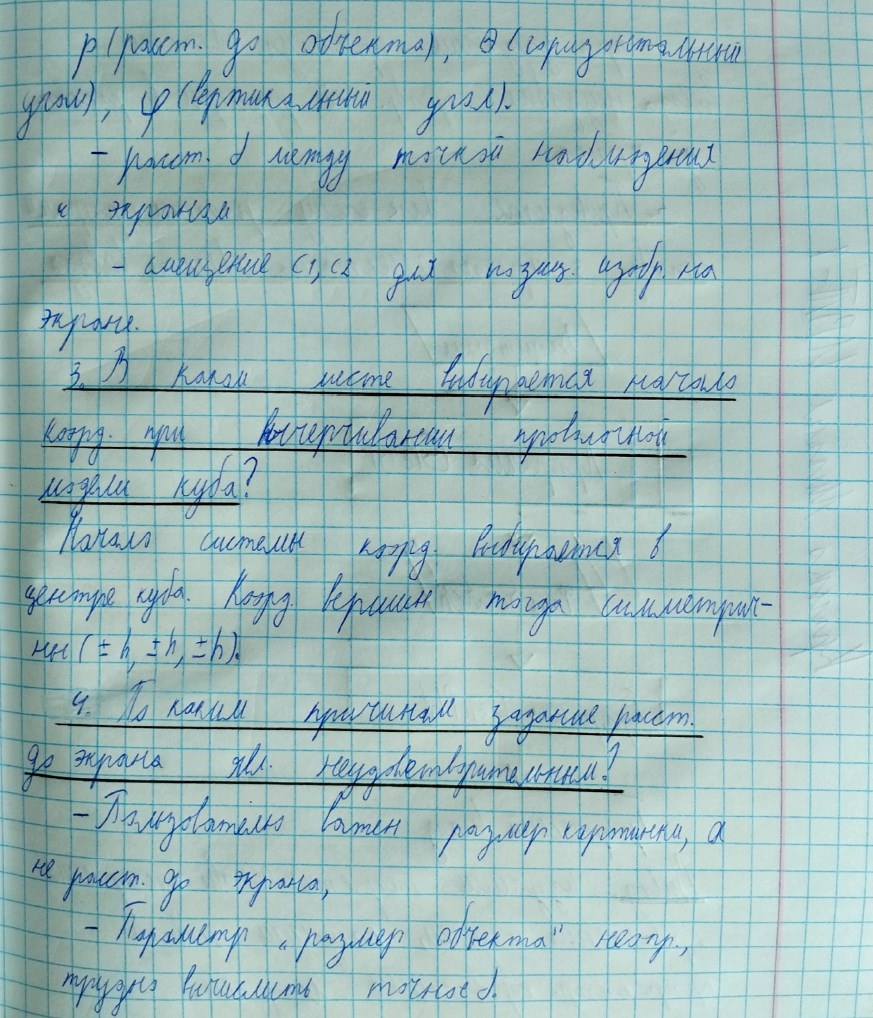 ρ (расст. до объекта), θ (горизонтальный
угол), φ (вертикальный угол).
- расст. d между точкой наблюдения
и экраном
- смещение c1, c2 для позиц. изобр. на
экране.
3. В каком месте выбирается начало
коорд. при вычерчивании проволочной
модели куба?
Начало системы коорд. выбирается в
центре куба. Коорд. вершин тогда симметрич-
ны (±h, ±h, ±h).
4. По каким причинам задание расст.
до экрана явл. неудовлетворительным?
- Пользователю важен размер картинки, а
не расст. до экрана,
- Параметр „размер объекта" неопр.,
трудно вычислить точное d.